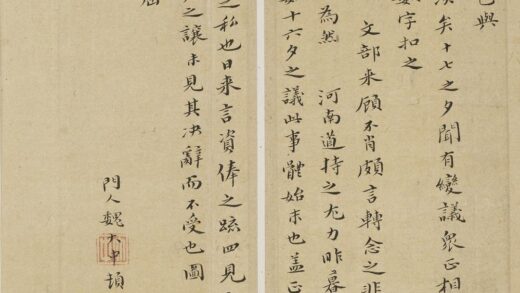 與
矣十七之夕聞有變議衆正相
字扣之
文部來顧不肖頗言轉念之非
為然 河南道持之尤力昨暮
十六夕之議此事體始末也蓋正
之私也日來言資俸之疏四見
之讓未見其決辭而不受也圖
門人魏大中頓